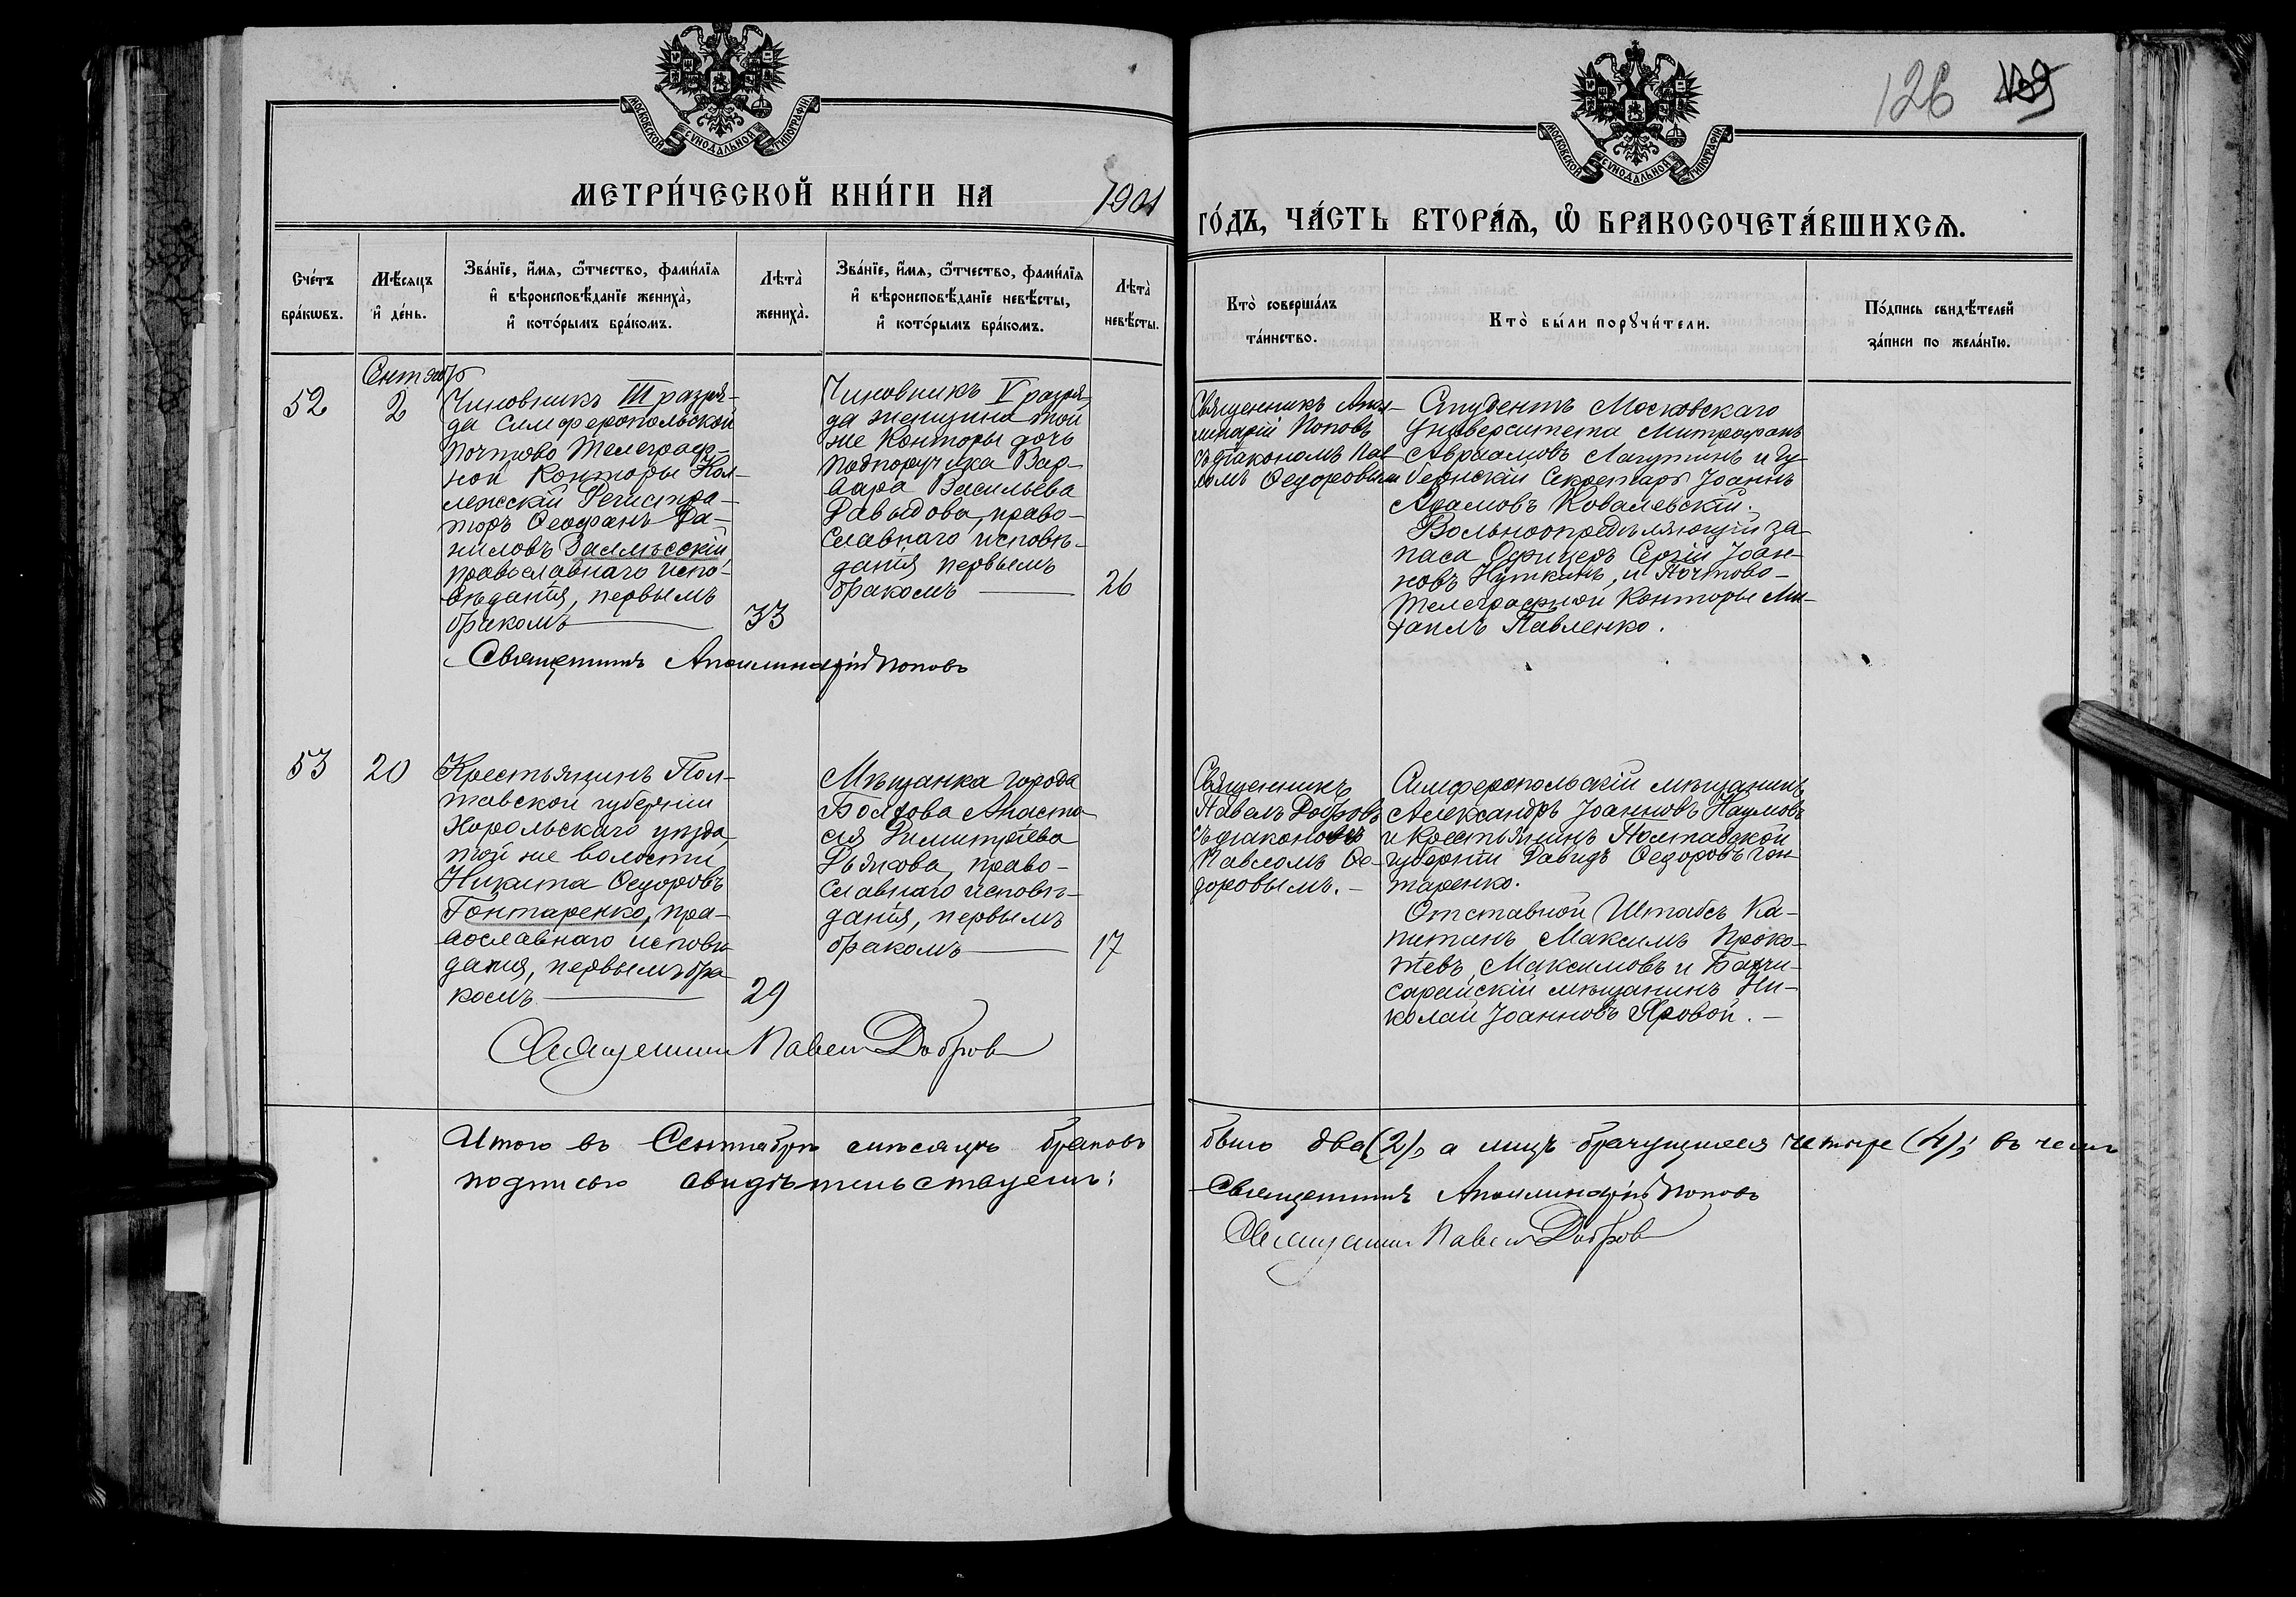 126 139
МОСКОВСКОЙ СѴНОДАЛЬНОЙ ТИПОГРАФІИ
МОСКОВСКОЙ СѴНОДАЛЬНОЙ ТИПОГРАФІИ
МЕТРИ́ЧЕСКОЙ КНИ́ГИ НА 1901
ГО́ДЪ, ЧА́СТЬ ВТОРА́Ѧ, Ѽ БРАКОСОЧЕТА́ВШИХСѦ.
Сче́тъ
бра́кѡвъ.
Мѣ́сяцъ
и҆ де́нь.
Зва́нїе, и҆́мѧ, ѻ҆́тчество, фами́лїѧ
и҆ вѣроисповѣ́данїе жениха̀,
и҆ кото́рымъ бра́комъ.
Лѣта̀
жениха̀.
Зва́нїе, и҆́мѧ, ѻ҆́тчество, фами́лїѧ
и҆ вѣроисповѣ́данїе невѣ́сты,
и҆ кото́рымъ бра́комъ.
Лѣта̀
невѣ́сты.
Кто̀ соверша́лъ
та́инство.
Кто̀ бы́ли порꙋчи́тели.
По́дпись свидѣ́телей
за́писи по жела́нїю.
Сентябрь
52
2
Чиновникъ III разря-
да Симферопольской
Почтово Телеграф-
ной Конторы Кол-
лежскій Регистра-
торъ Ѳеофанъ Да-
ниловъ Залѣсскій
православнаго испо-
вѣданія, первымъ
бракомъ
33
Чиновникъ V разря-
да женщина той
же Конторы дочь
Подпоручика Вар-
вара Васильева
Давыдова, право-
славнаго исповѣ-
данія первымъ
бракомъ
26
Священникъ Апол-
линарій Поповъ
съ діакономъ Пав-
ломъ Ѳедоровымъ
Студентъ Московскаго
Университета Митрофанъ
Авраамовъ Лагутинъ и Гу-
бернскій Секретарь Іоаннъ
Адамовъ Ковалевскій.
Вольноопредѣляющій за-
паса Офицеръ Сергій Іоан-
новъ Нуткинъ, и Почтово-
Телеграфной Конторы Ми-
хаилъ Павленко.
Священникъ Аполлинарій Поповъ
53
20
Крестьянинъ Пол-
тавской губерніи
Хорольскаго уѣзда,
той же волости
Никита Ѳедоровъ
Гонтаренко, пра-
вославнаго исповѣ-
данія, первымъ бра-
комъ
29
Мѣщанка города
Болхова Анаста-
сія Димитріева
Дьякова, право-
славнаго исповѣ-
данія, первымъ
бракомъ
17
Священникъ
Павелъ Добровъ
съ діакономъ
Павломъ Ѳе-
доровымъ.
Симферопольскій мѣщанинъ
Александръ Іоанновъ Наумовъ
и крестьянинъ Полтавской
губерніи Давидъ Ѳедоровъ Гон-
таренко.
Отставной Штабсъ Ка-
питанъ Максимъ Проко-
піевъ Максимовъ и Бахчи-
сарайскій мѣщанинъ Ни-
колай Іоанновъ Яровой.
Священникъ Павелъ Добровъ
Итого въ Сентябрѣ мѣсяцѣ браковъ было два (2), а лицъ брачущихся четыре (4); въ чемъ
подписью свидѣтельствуемъ:
Священникъ Аполлинарій Поповъ
Священникъ Павелъ Добровъ